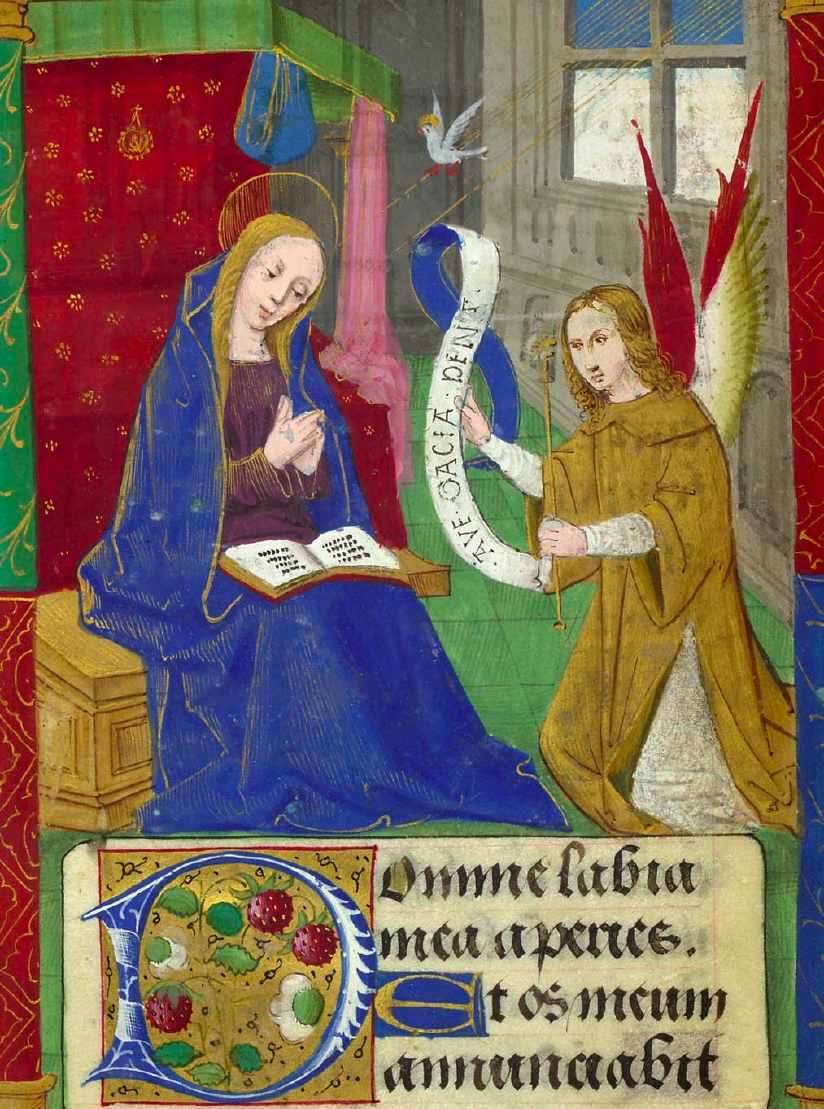 ·AVE·GACIA·DENI·
Domine labia
mea aperies.
Et os meum
annunciabit